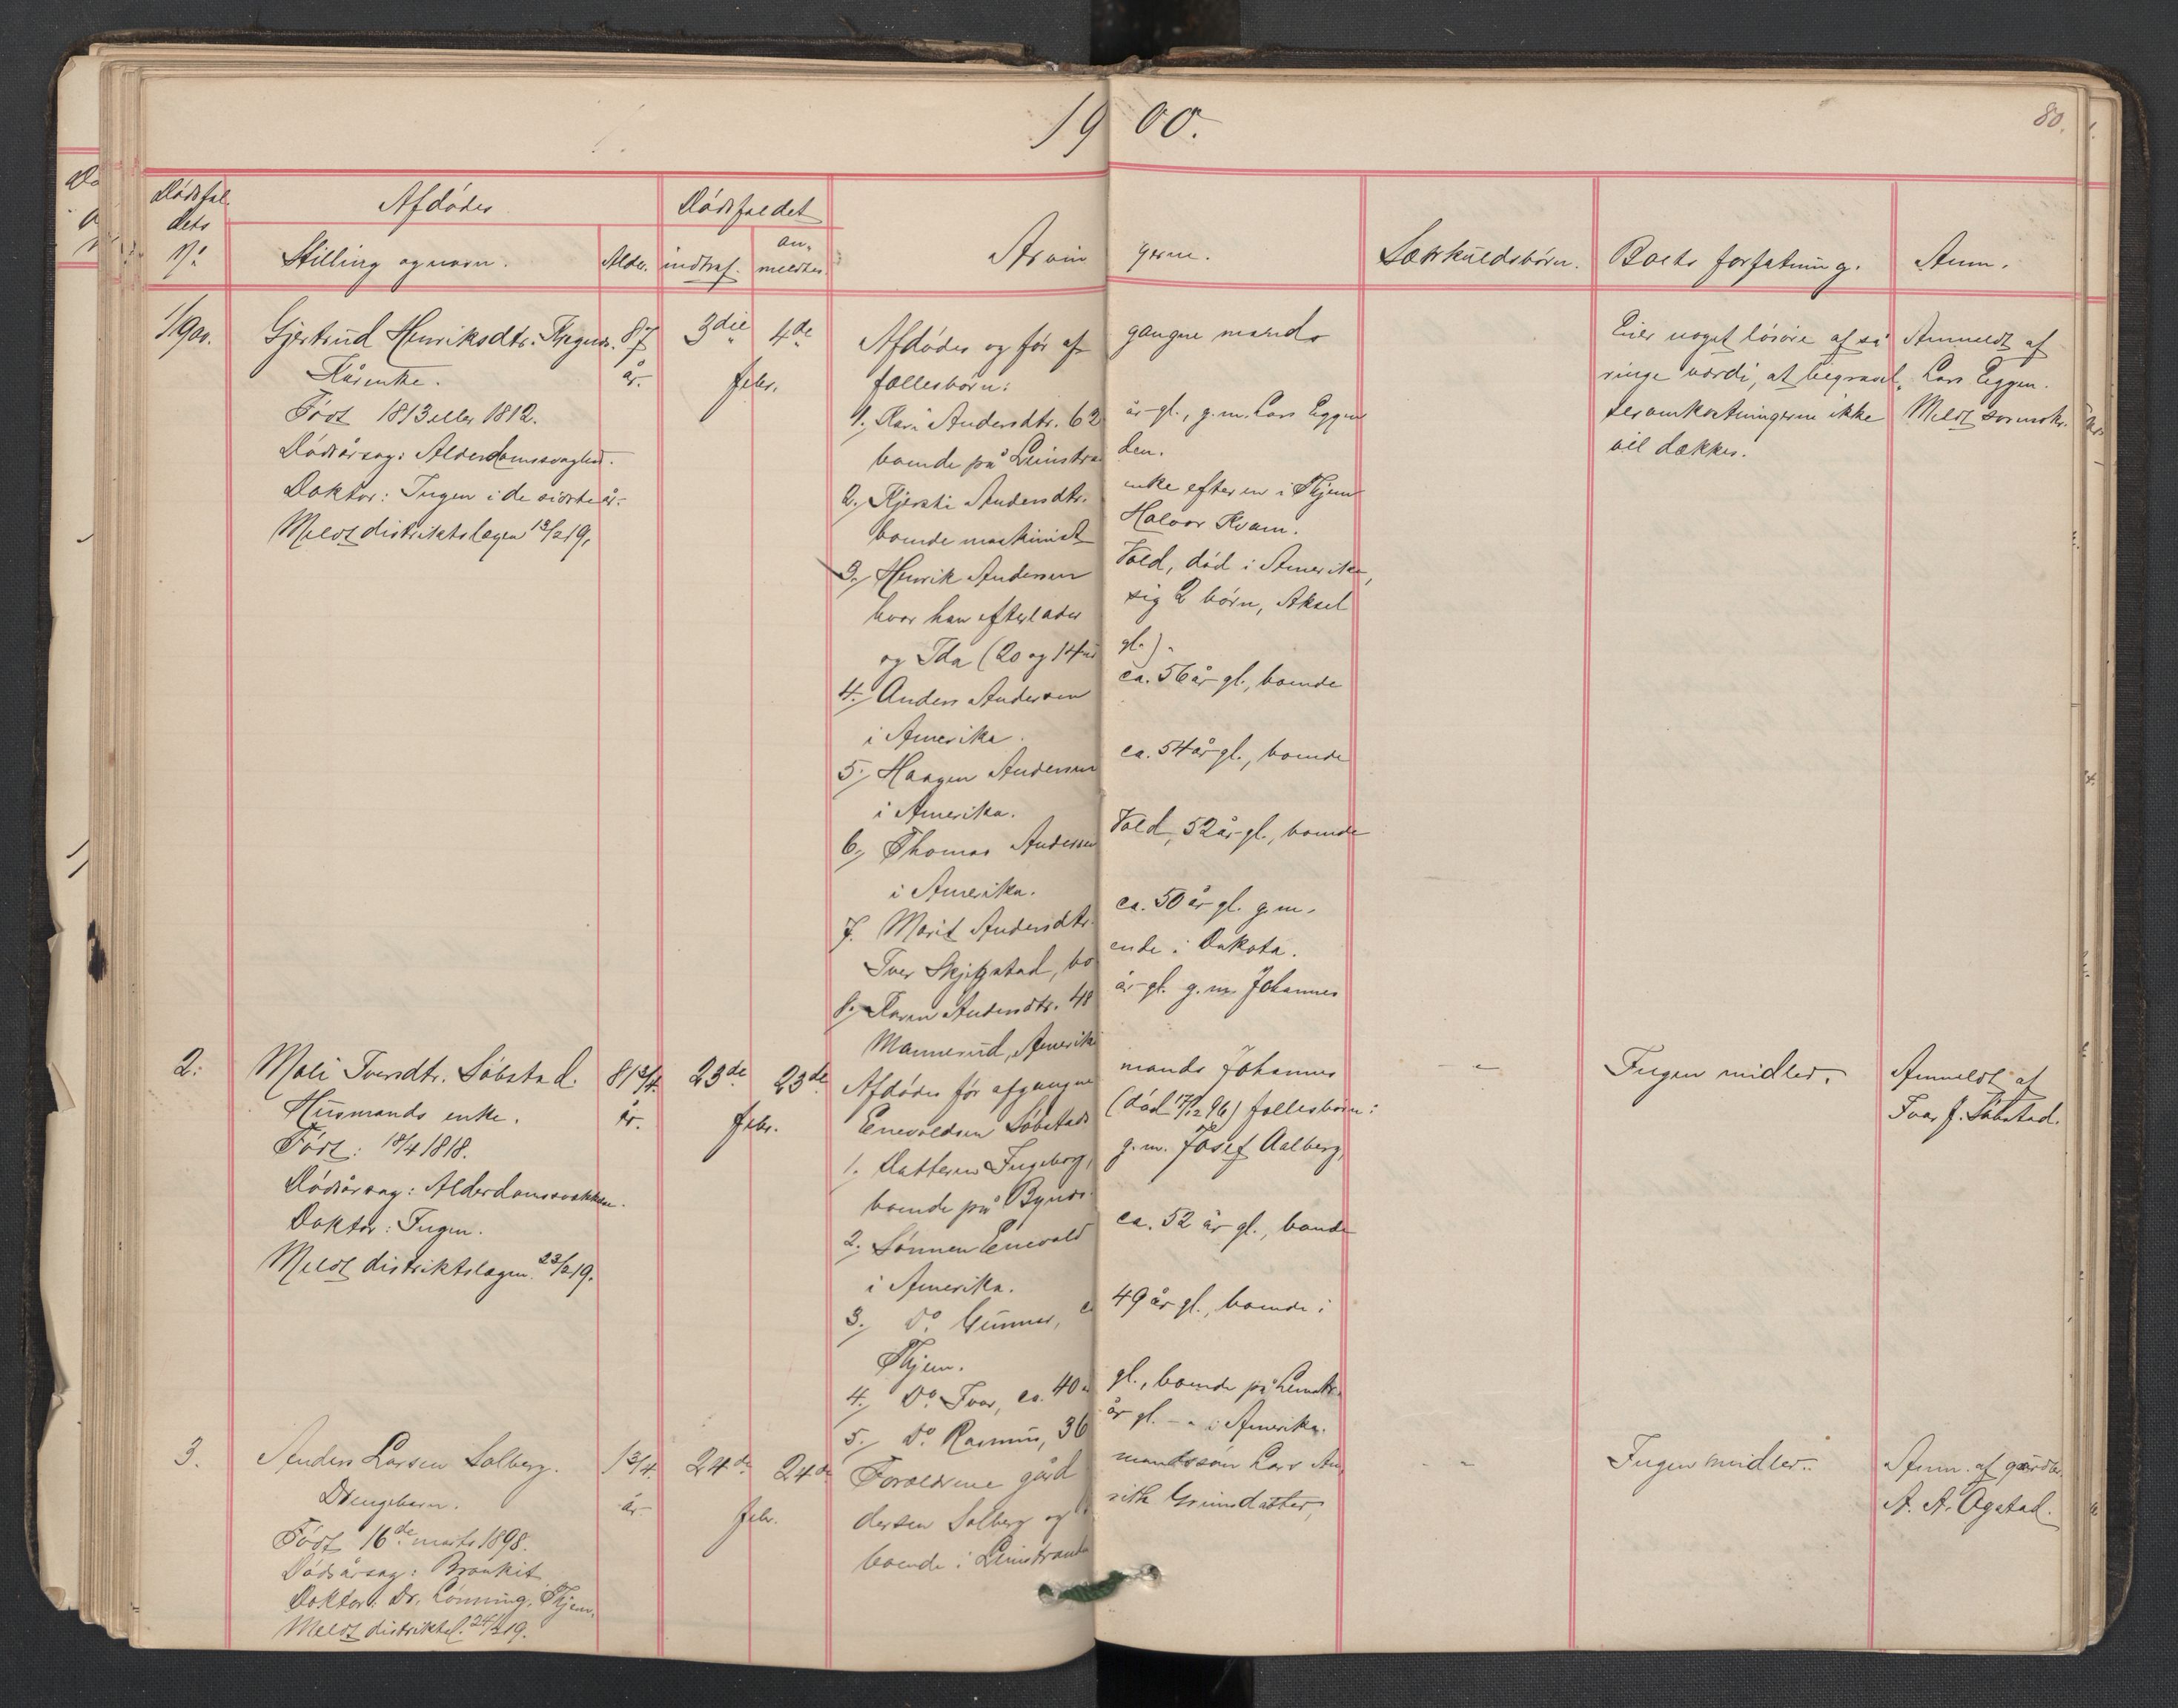 1900.
80.
Dødsfal-
dets
No
Afdødes
Stilling og navn.
Alder.
Dødsfaldet
indtraf.
an-
meldtes.
Arvingerne.
Særkuldsbørn.
Boets forfatning.
Anm.
1/900.
Gjertrud Henriksdtr.
Kårenke.
Født 1813 eller 1812.
Dødsårsag: Alderdomssvaghed.
Doktor: Ingen i de sidste år.
Meldt distriktslægen 13/2 19.
87
år.
3die
4de
febr.
Afdødes og før afgangne mands
fællesbørn:
1. Kari Andersdtr. 62 år gl., g.m. Lars Eggen
boende på Leinstranden.
2. Kjersti Andersdtr. enke efter en i Thjem
boende maskinist Halvor Kvam.
3. Henrik Andersen Vold, død i Amerika,
hvor han efterlader sig 2 børn, Aksel
og Ida (20 og 14 år gl.).
4. Anders Andersen ca. 56 år gl., boende
i Amerika.
5. Haagen Andersen ca. 54 år gl., boende
i Amerika.
6. Thomas Andersen Vold, 52 år gl., boende
i Amerika.
7. Marit Andersdtr. ca. 50 år gl. g.m.
Iver Skjefstad, boende i Dakota.
8. Karen Andersdtr. 48 år gl. g.m. Johannes
Mannerud, Amerika
Eier noget løsøre af så
ringe værdi, at begravel-
sesomkostningerne ikke
vil dækkes.
Anmeldt af
Lars Eggen.
Meldt
2.
Mali Iversdtr. Søbstad.
Husmands enke.
Født: 18/4 1818.
Dødsårsag: Alderdomssvakhed.
Doktor: Ingen.
Meldt distriktslægen 23/2 19.
81 3/4
år.
23de
23de
febr.
Afdødes før afgangne mands Johannes
Enevoldsen Søbstads (død 17/12 96) fællesbørn:
1. Datteren Ingeborg, g.m. Josef Aalberg,
boende på Bynes.
2. Sønnen Enevold ca. 52 år gl., boende
i Amerika.
3. Do Gunnar, ca 49 år gl., boende i
Thjem.
4. Do Ivar, ca. 40 år gl., boende på Leinstr.
5. Do Rasmus, 36 år gl. - " i Amerika.
- "
Ingen midler.
Anmeldt af
Ivar J. Søbstad.
3.
Anders Larsen Solberg.
Drengebarn.
Født 16de marts 1898.
Dødsårsag: Bronkit.
Doktor: Dr. Lønning, Thjem.
Meldt distriktsl. 24/2 19.
1 3/4
år
24de
24de
febr.
Forældrene gårdmandssøn Lars An-
dersen Solberg og Grimsdatter,
boende i Leinstranden
- "
Ingen midler.
Anm. af gårdbr.
A. A. Øgstad.